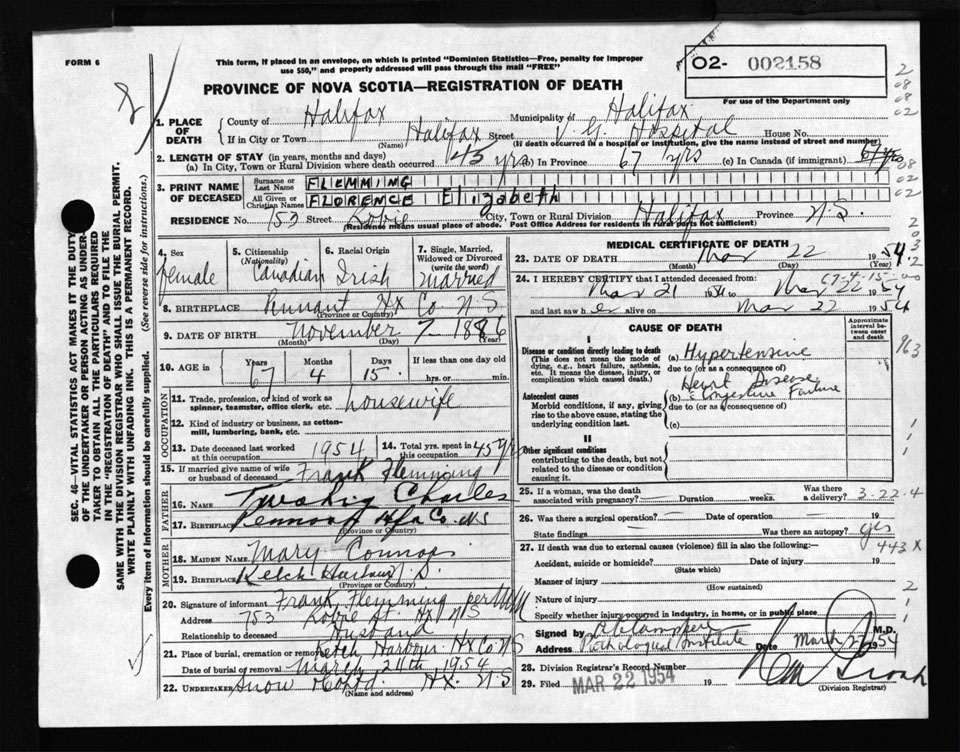 FORM 6
This form, if placed in an envelope, on which is printed "Dominion Statistics—Free, penalty for improper
use $50," and properly addressed will pass through the mail "FREE"
PROVINCE OF NOVA SCOTIA—REGISTRATION OF DEATH
O2- 002158
For use of the Department only
1. PLACE OF DEATH
County of Halifax Municipality of Halifax
If in City or Town Halifax Street V. G. Hospital House No.
(Name) (If death occurred in a hospital or institution, give the name instead of street and number)
2. LENGTH OF STAY (in years, months and days)
(a) In City, Town or Rural Division where death occurred 45 yrs (b) In Province 67 yrs (c) In Canada (if immigrant) 67 yrs
3. PRINT NAME OF DECEASED
Surname or Last Name FLEMMING
All Given or Christian Names FLORENCE Elizabeth
RESIDENCE No. 753 Street Robie City, Town or Rural Division Halifax Province N.S.
(Residence means usual place of abode. Post Office Address for residents in rural parts not sufficient)
4. Sex female
5. Citizenship (Nationality) Canadian
6. Racial Origin Irish
7. Single, Married, Widowed or Divorced (write the word) Married
8. BIRTHPLACE Hx Co N S
(Province or Country)
9. DATE OF BIRTH November 7 1886
(Month) (Day) (Year)
10. AGE in Years 67 Months 4 Days 15 If less than one day old hrs. or min.
OCCUPATION
11. Trade, profession, or kind of work as spinner, teamster, office clerk, etc. housewife
12. Kind of industry or business, as cotton-mill, lumbering, bank, etc.
13. Date deceased last worked at this occupation 1954
14. Total yrs. spent in this occupation 45 yrs
15. If married give name of wife or husband of deceased Frank Flemming
FATHER
16. NAME Charles
17. BIRTHPLACE Hfx Co. N.S
(Province or Country)
MOTHER
18. MAIDEN NAME Mary Connors
19. BIRTHPLACE Ketch Harbour N.S.
(Province or Country)
20. Signature of informant Frank Flemming per
Address 753 Robie St Hx N S
Relationship to deceased Husband
21. Place of burial, cremation or removal Ketch Harbour Hx Co N S
Date of burial or removal March 24th 1954
22. UNDERTAKER Snow Hx. N S
(Name and address)
MEDICAL CERTIFICATE OF DEATH
23. DATE OF DEATH Mar 22 1954
(Month) (Day) (Year)
24. I HEREBY CERTIFY that I attended deceased from:
Mar 21 1954 to Mar 22 1954
and last saw her alive on Mar 22 1954
CAUSE OF DEATH
Approximate interval between onset and death
I
Disease or condition directly leading to death
(This does not mean the mode of dying, e.g., heart failure, asthenia, etc. It means the disease, injury, or complication which caused death.)
(a) Hypertensive
due to (or as a consequence of)
Heart Disease
Antecedent causes
Morbid conditions, if any, giving rise to the above cause, stating the underlying condition last.
(b) Congestive Failure
due to (or as a consequence of)
(c)
II
Other significant conditions
contributing to the death, but not related to the disease or condition causing it.
25. If a woman, was the death associated with pregnancy? — Duration weeks. Was there a delivery? 3-22-4
26. Was there a surgical operation? — Date of operation — 19
State findings Was there an autopsy? yes
27. If death was due to external causes (violence) fill in also the following:— 443 X
Accident, suicide or homicide? Date of injury 19
(State which)
Manner of injury
(How sustained)
Nature of injury
Specify whether injury occurred in industry, in home, or in public place
Signed by M.D.
Address Pathological Institute Date March 1954
28. Division Registrar's Record Number
29. Filed MAR 22 1954 19
(Division Registrar)
SEC. 46—VITAL STATISTICS ACT MAKES IT THE DUTY
OF THE UNDERTAKER OR PERSON ACTING AS UNDER-
TAKER TO OBTAIN ALL THE PARTICULARS REQUIRED
IN THE "REGISTRATION OF DEATH" AND TO FILE THE
SAME WITH THE DIVISION REGISTRAR WHO SHALL ISSUE THE BURIAL PERMIT.
WRITE PLAINLY WITH UNFADING INK. THIS IS A PERMANENT RECORD.
Every item of information should be carefully supplied. (See reverse side for instructions.)